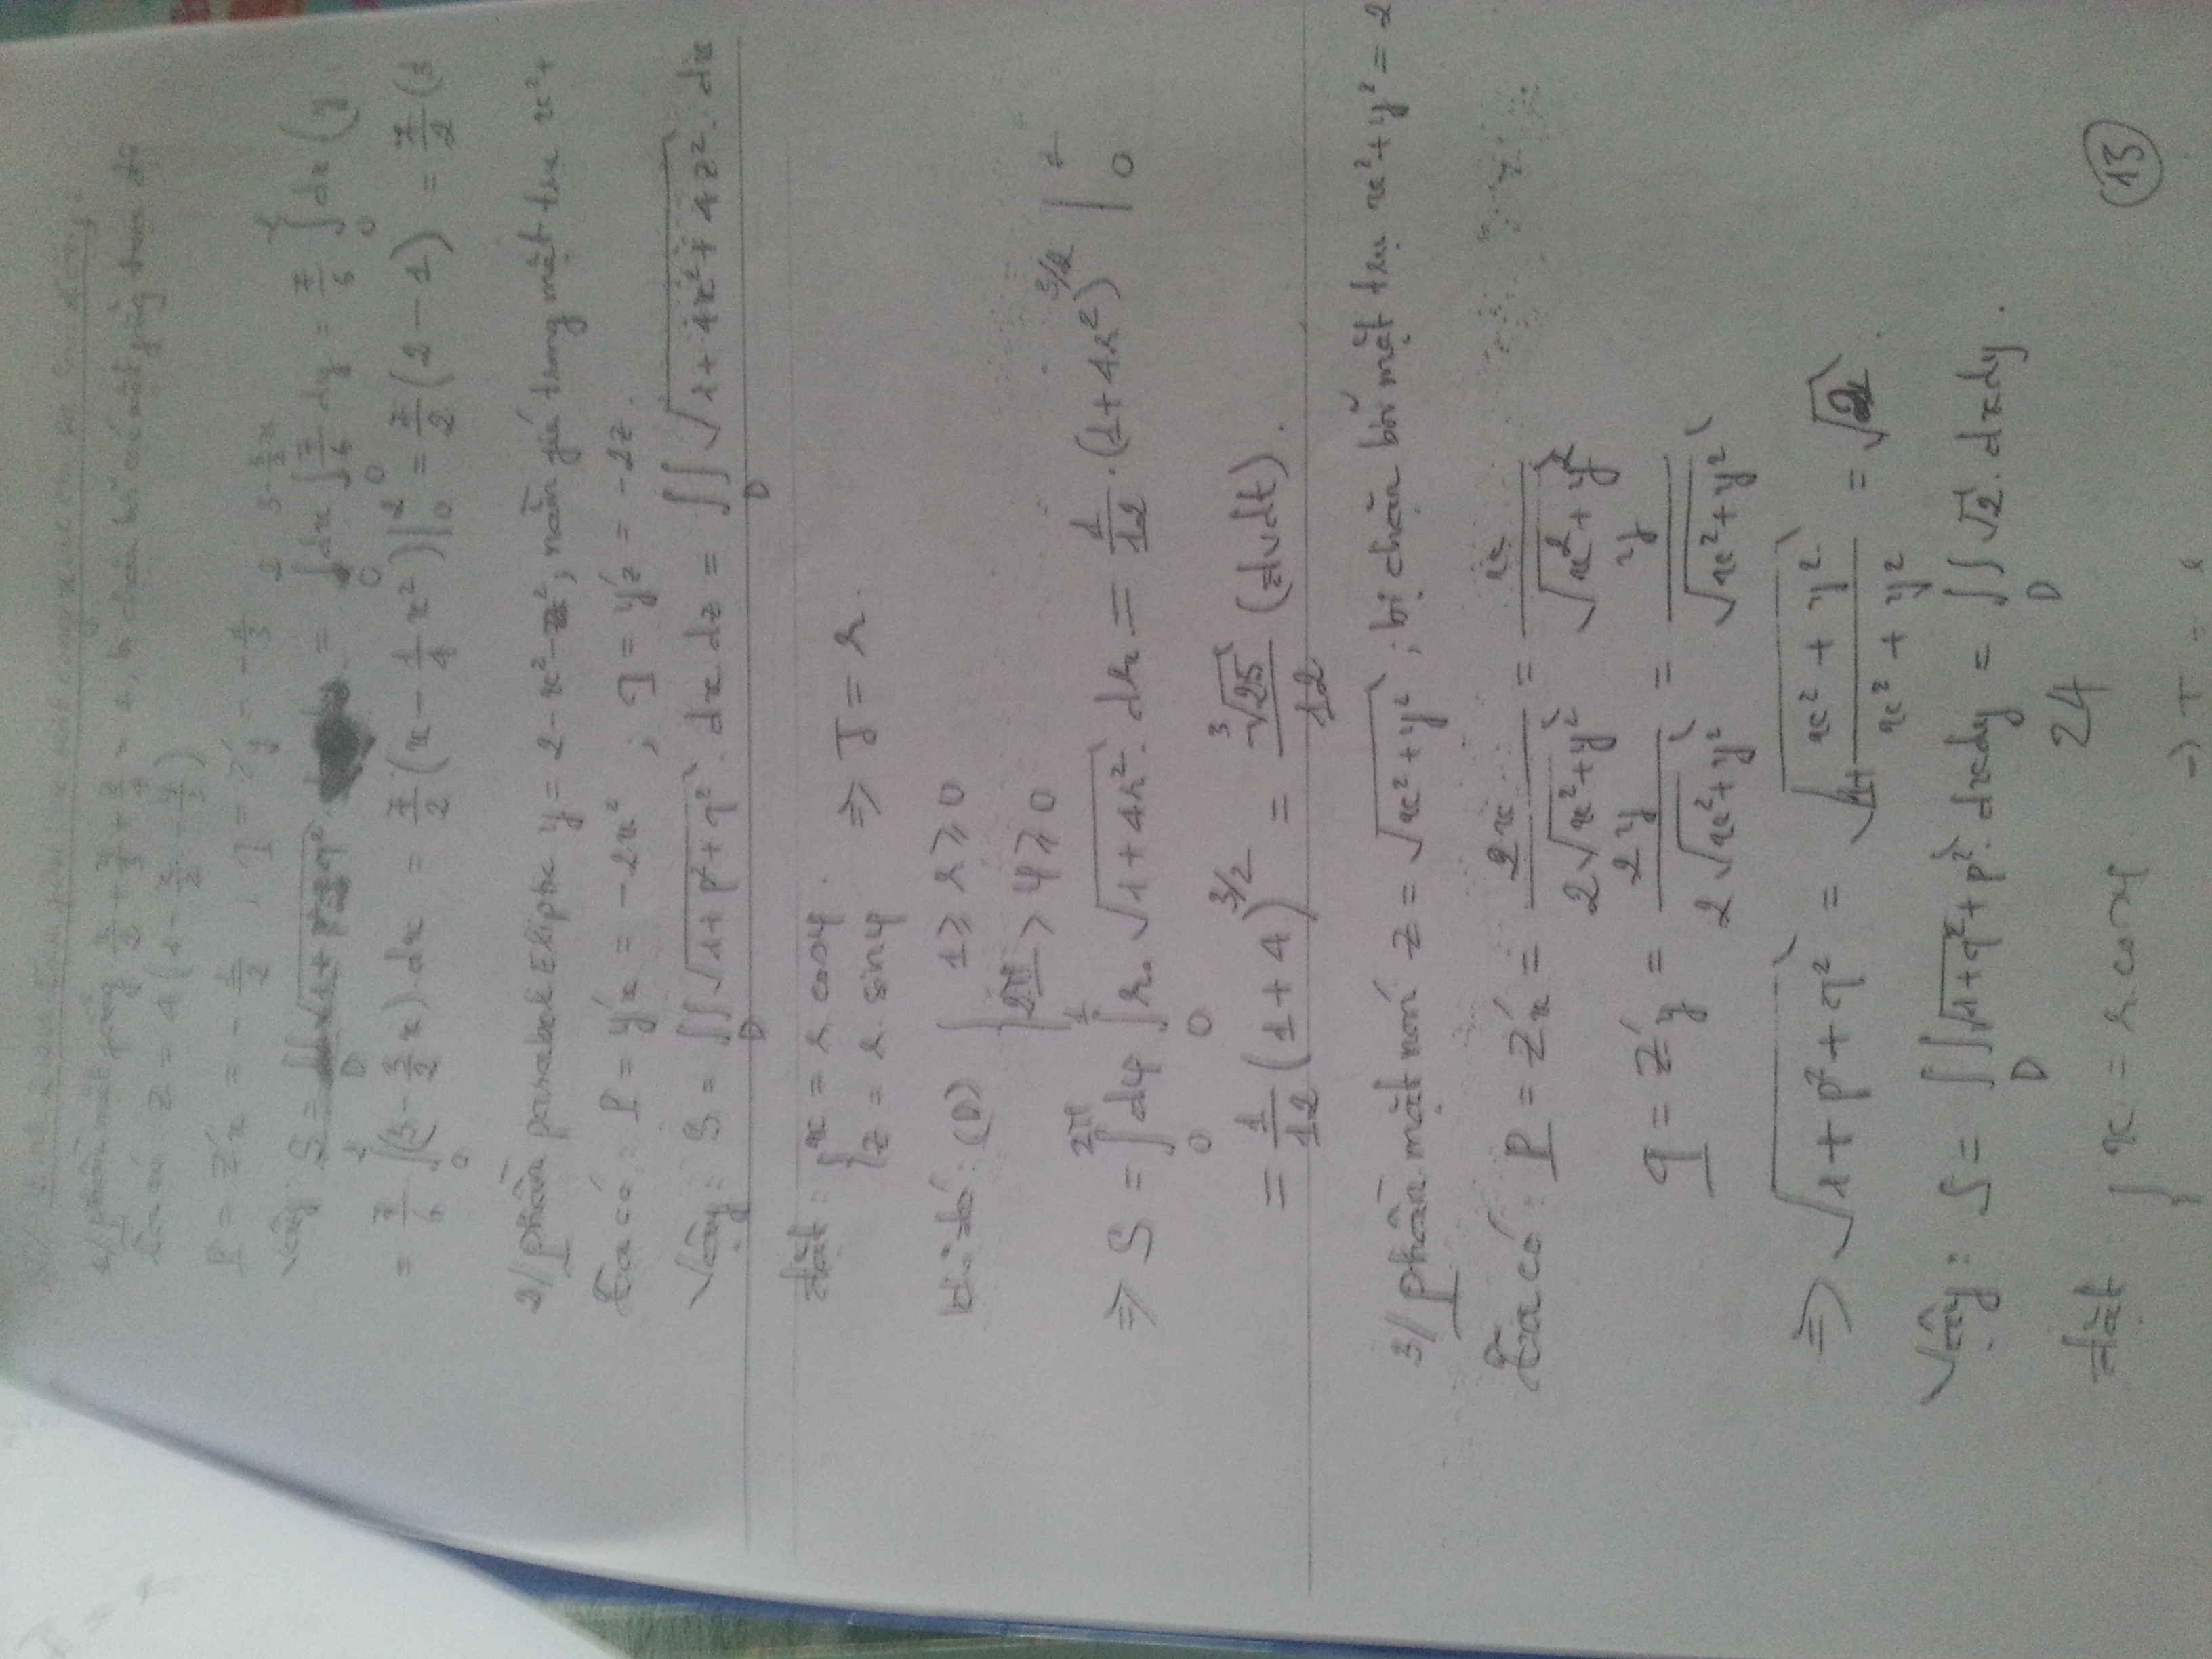 1// phần mặt phẳng x/2 + y/3 + z/4 = 1, bị chắn bởi các mặt phẳng
Ta có: Z = 4(1 - x/2 - y/3)
P = Z'x = -1/2 ; q = Z'y = -1/3
Vậy: S = ∬_D √(1+p²+q²) = ∫_0^2 dx ∫_0^{3-3/2x} 7/6 dy = 7/6 ∫_0^2 dx (y
= 7/6 ∫_0^2 (3 - 3/2 x).dx = 7/2 (x - 1/4 x²)|_0^2 = 7/2 (2 - 1) = 7/2 (
2// phần parabol Eliptic y = 2 - x² - z², nằm phía trong mặt trụ x² +
Ta có: P = y'x = -2x² ; q = y'z = -2z.
Vậy: S = ∬_D √(1+p²+q²). dx dz = ∬_D √(1+4x²+4z²). dx
đặt: { x = r cosφ.
z = r. sinφ ⇒ J = r.
Khi đó: (D) { 1 ≥ r ≥ 0
2π > φ ≥ 0
⇒ S = ∫_0^{2π} dφ ∫_0^1 r. √(1+4r²). dr = 1/12 . (1+4r²)^{3/2} |_0
= 1/12 (1+4)^{3/2} = ³√25/12 (đvdt).
3// phần mặt nón z = √(x²+y²) ; bị chắn bởi mặt trụ x² + y² = 2
Ta có: P = Z'x = 2x/(2√(x²+y²)) = x/√(x²+y²)
q = Z'y = 2y/(2√(x²+y²)) = y/√(x²+y²)
⇒ √(1+p²+q²) = √(1+(x²+y²)/(x²+y²)) = √2.
Vậy: S = ∬_D √(1+q²+p²). dxdy = ∬_D √2. dxdy.
24
đặt { x = r cosφ
13